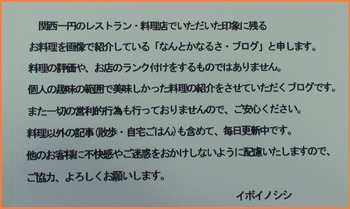 関西一円のレストラン・料理店でいただいた印象に残る
お料理を画像で紹介している「なんとかなるさ・ブログ」と申します。
料理の評価や、お店のランク付けをするものではありません。
個人の趣味の範囲で美味しかった料理の紹介をさせていただくブログです。
また一切の営利的行為も行っておりませんので、ご安心ください。
料理以外の記事(散歩・自宅ごはん)も含めて、毎日更新中です。
他のお客様に不快感やご迷惑をおかけしないように配慮いたしますので、
ご協力、よろしくお願いします。
イボイノシシ